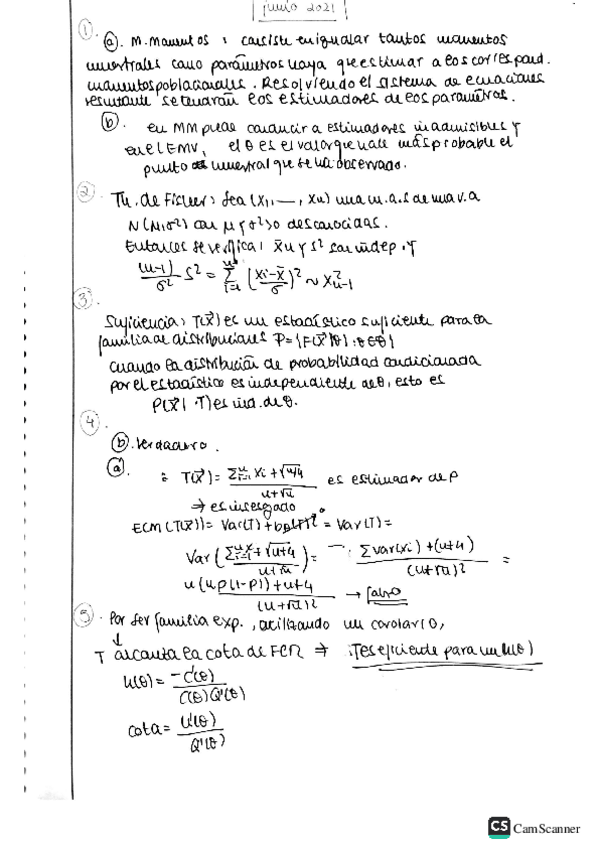 junio 2021
1.
(a). M. Momentos : consiste en igualar tantos momentos
muestrales como parámetros haya que estimar a los correspond.
momentos poblacionales. Resolviendo el sistema de ecuaciones
resultante se tendrán los estimadores de los parámetros.
(b). en MM puede conducir a estimadores inadmisibles y
en el EMV, el θ es el valor que hace más probable el
punto muestral que se ha observado.
2. Th. de Fisher: Sea (X1, —, Xn) una m.a.s de una v.a
N(μ,σ²) con μ y σ²>0 desconocidas.
Entonces se verifica: x̄n y s² son indep. y
(n-1)/σ² S² = Σⁿᵢ₌₁ (xi-x̄/σ)² ~ X²n-1
3.
Suficiencia: T(x⃗) es un estadístico suficiente para la
familia de distribuciones P={F(x⃗|θ) : θ∈Θ}
cuando la distribución de probabilidad condicionada
por el estadístico es independiente de θ, esto es
P(x⃗| T) es ind. de θ.
4.
(b). Verdadero.
(a). : T(x⃗) = Σⁿᵢ₌₁ xi + √n/4 / n+√n es estimador de p
→ es insesgado
ECM(T(x⃗)) = Var(T) + = Var(T) =
Var( Σⁿᵢ₌₁ x + √n+4 / n+√n ) = Σ var(xi) + (n+4) / (n+√n)² =
n(np(1-p)) + n+4 / (n+√n)² → Falso
5. Por ser familia exp., utilizando un corolario,
T alcanza la cota de FCR ⇒ ¡T es eficiente para un h(θ)
h(θ) = -C'(θ) / C(θ)Q'(θ)
cota = h'(θ) / Q'(θ)
CS CamScanner